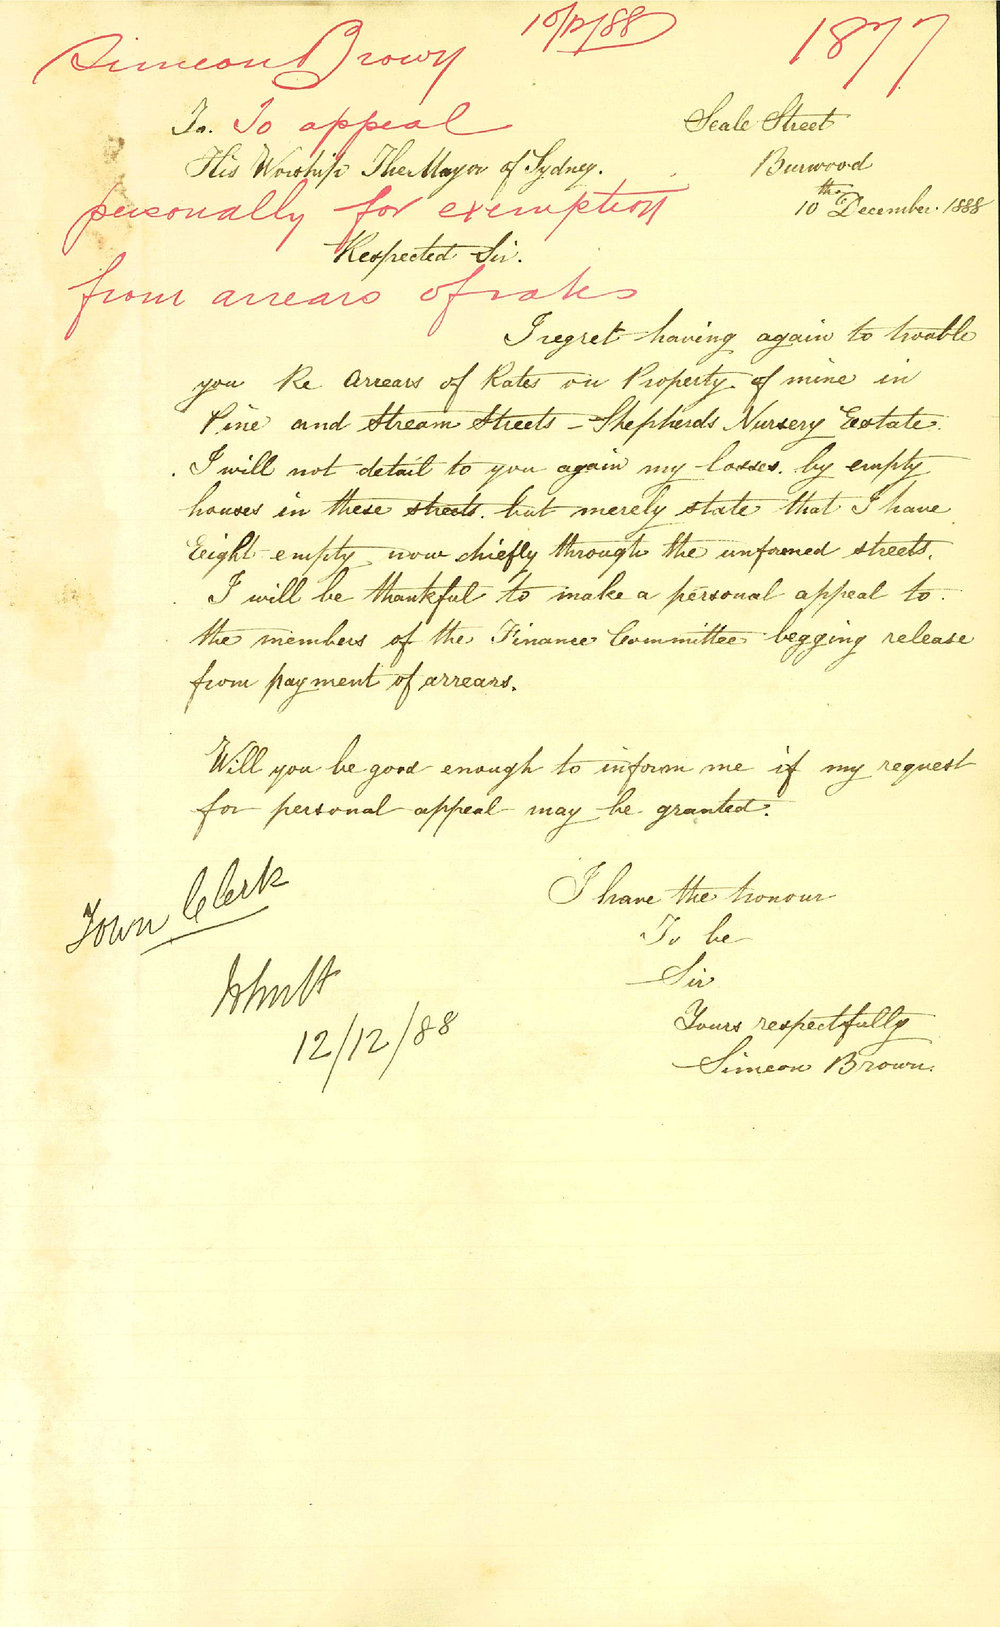 Simeon Brown 10/12/88 1877
To. To appeal
Seale Street
His Worship The Mayor of Sydney.
Burwood
personally for exemption
10th December. 1888
Respected Sir.
from arrears of rates
I regret having again to trouble
you Re Arrears of Rates on Property of mine in
Pine and Stream Streets - Shepherds Nursery Estate.
I will not detail to you again my losses. by empty
houses in these streets. but merely state that I have
Eight empty now chiefly through the unformed streets.
I will be thankful to make a personal appeal to
the members of the Finance Committee begging release
from payment of arrears.
Will you be good enough to inform me if my request
for personal appeal may be granted.
Town Clerk
I have the honour
To be
Sir
12/12/88
Yours respectfully
Simeon Brown.